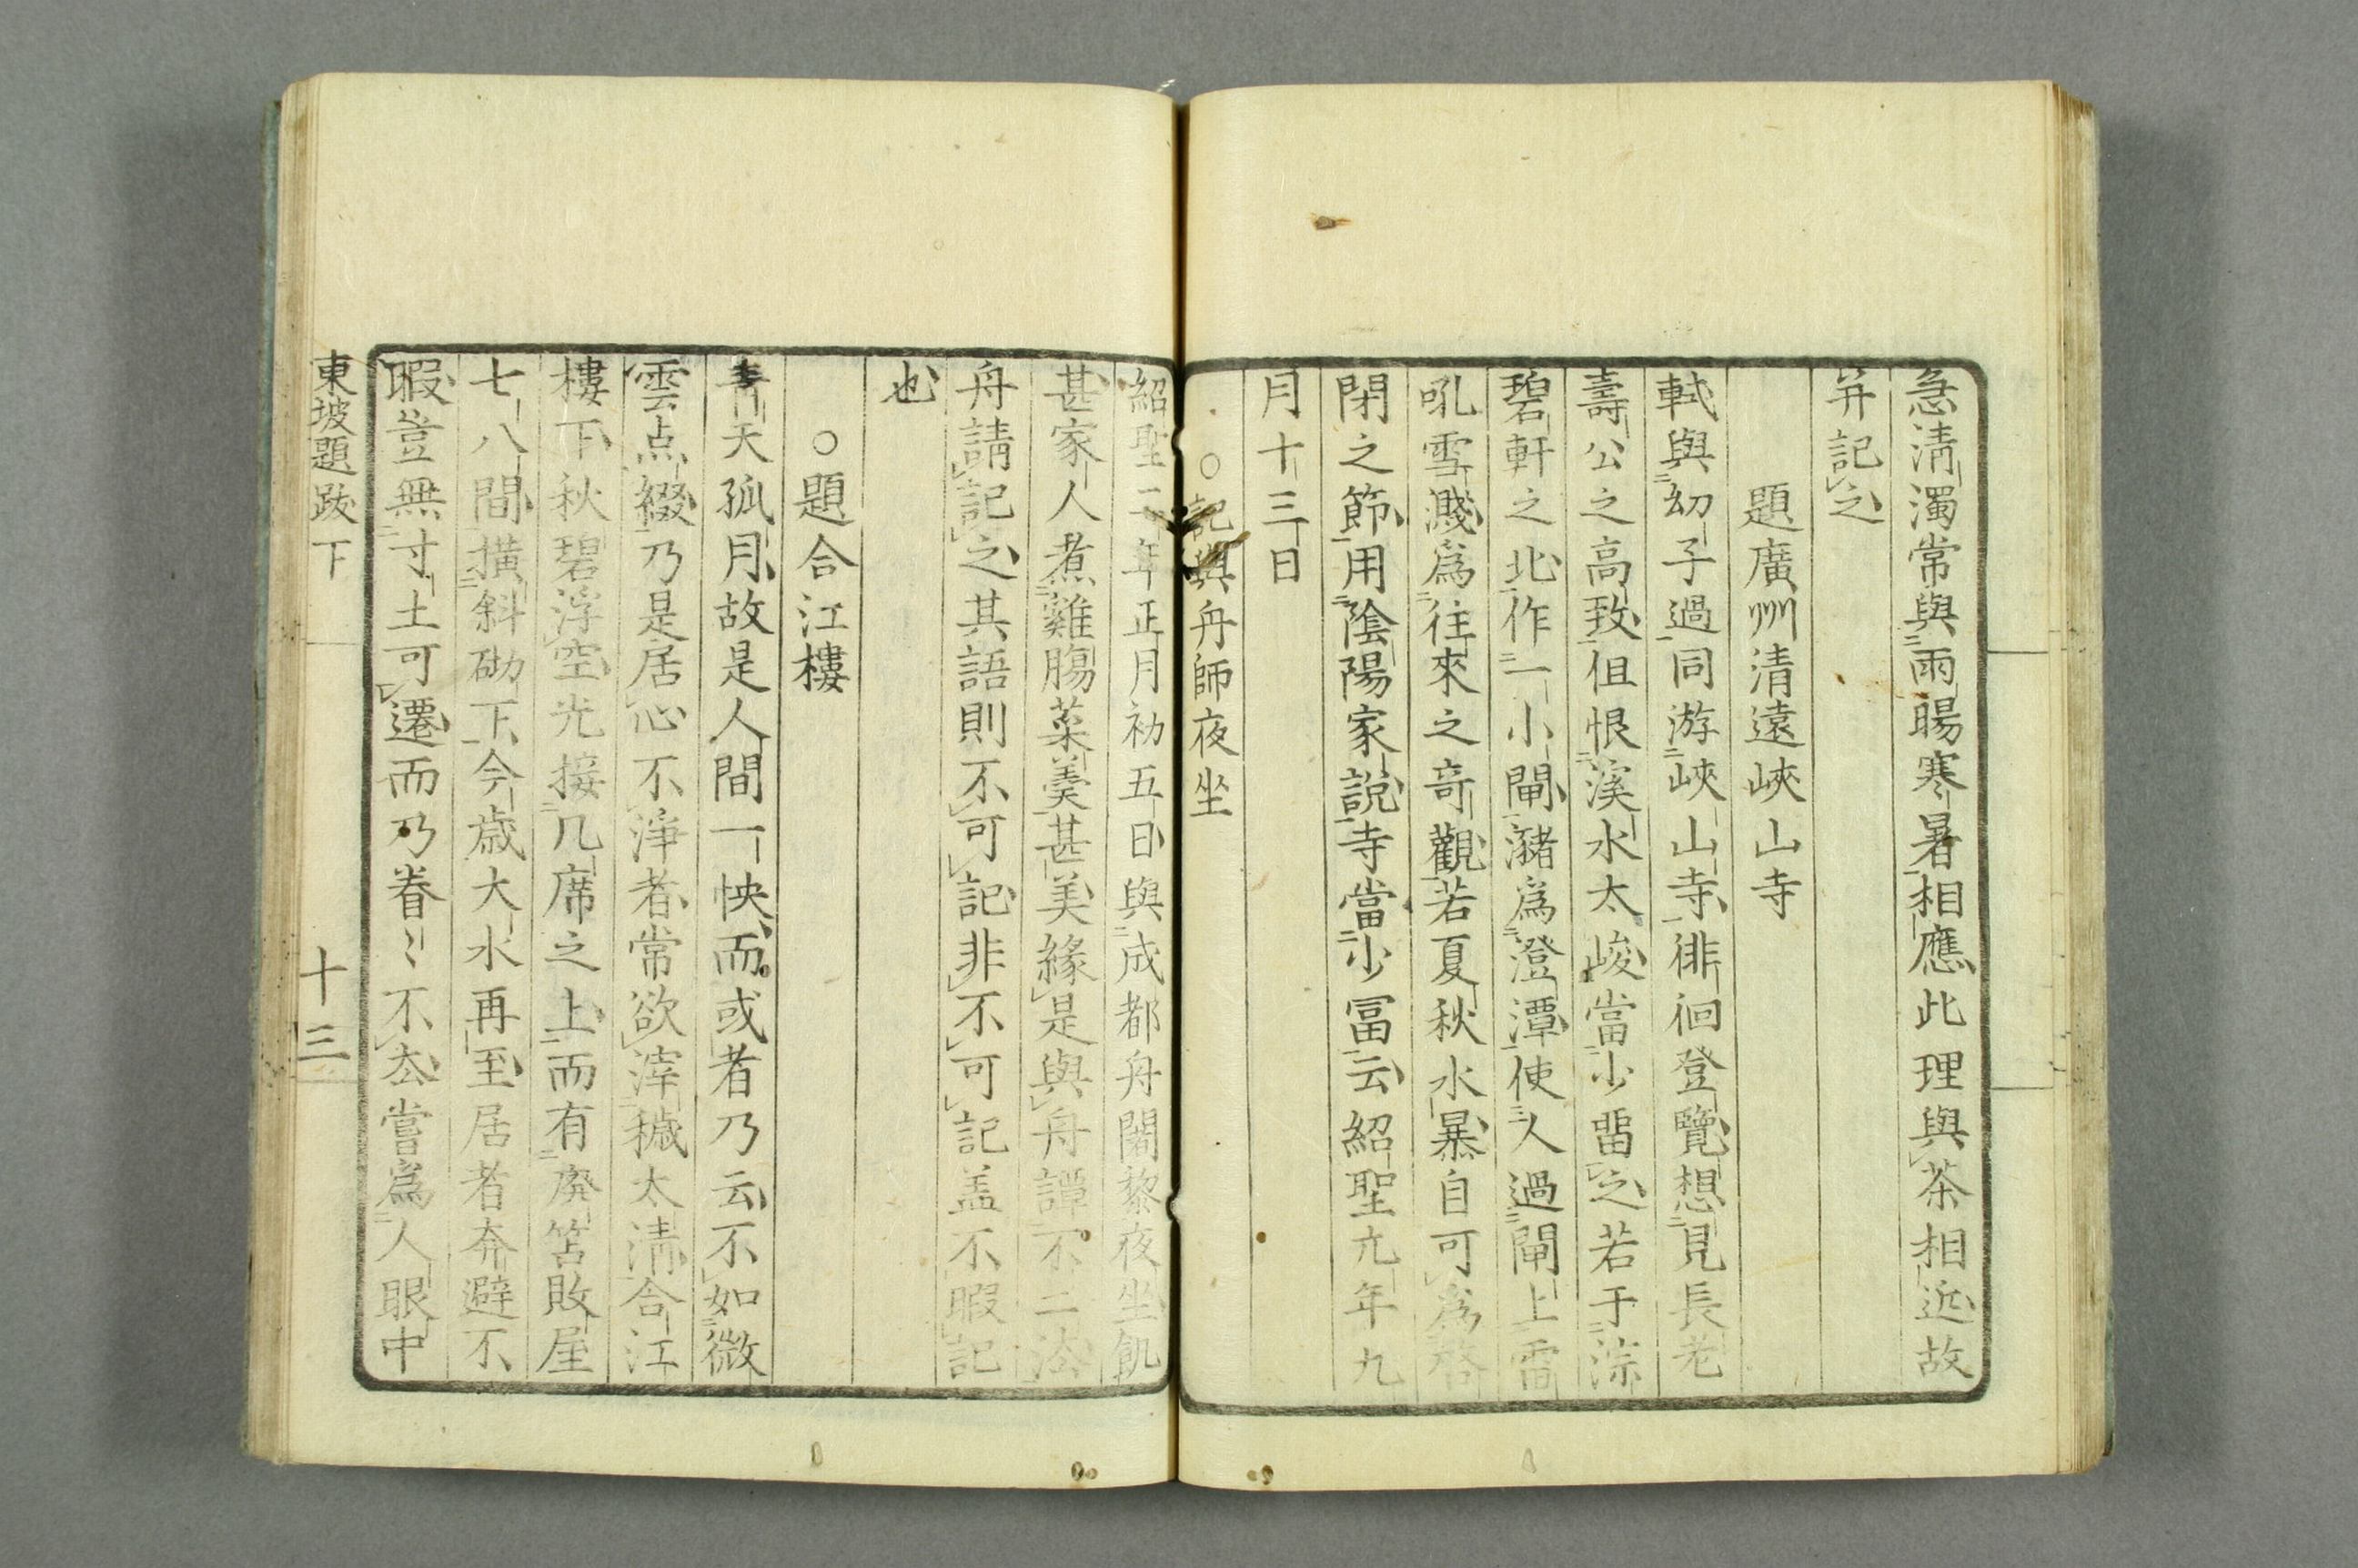 急淸濁常與雨暘寒暑相應此理與茶相近故
幷記之
題廣州清遠峽山寺
軾與幼子過同游峽山寺徘徊登覽想見長老
壽公之高致但恨溪水太峻當少畱之若于淙
碧軒之北作一小閘瀦爲澄潭使人過閘上雷
吼雪濺爲往來之奇觀若夏秋水暴自可爲啓
閉之節用陰陽家說寺當少冨云紹聖元年九
月十三日
○記與舟師夜坐
紹聖二年正月初五日與成都舟闍黎夜坐飢
甚家人煮雞腸菜羹甚美緣是與舟譚不二法
舟請記之其語則不可記非不可記盖不暇記
也
○題合江樓
青天孤月故是人間一快而或者乃云不如微
雲点綴乃是居心不淨者常欲滓穢太淸合江
樓下秋碧浮空光接几席之上而有廃笘敗屋
七八間横斜砌下今歳大水再至居者奔避不
暇豈無寸土可遷而乃眷〻不厺嘗爲人眼中
東坡題跋下
十三